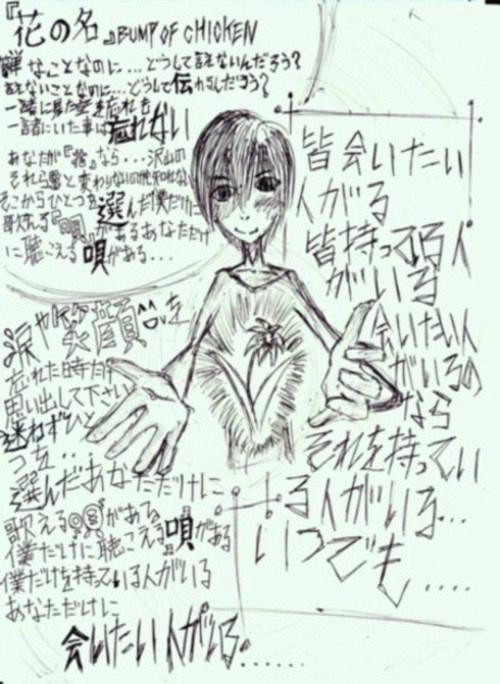 『花の名』BUMP OF CHICKEN
簡単なことなのに...どうして言えないんだろう?
言えないことなのに...どうして伝わるんだろう?
一緒に見た空を忘れても
一緒にいた事は忘れない
あなたが『花』なら...沢山の
それらと変わりないのかも知れない
そこからひとつを選んだ僕だけに
歌える『唄』があるあなただけ
に聴こえる唄がある...
涙や笑顔を
忘れた時だけ
思い出して下さい
迷わずひと
つを...
選んだあなただけに
歌える唄がある
僕だけに聴こえる唄がある
僕だけを待っている人がいる
あなただけに
会いたい人がいる......
皆会いたい
人がいる
皆待っている人
がいる
会いたい人
がいるの
なら
それを待ってい
る人がいる...
いつでも....